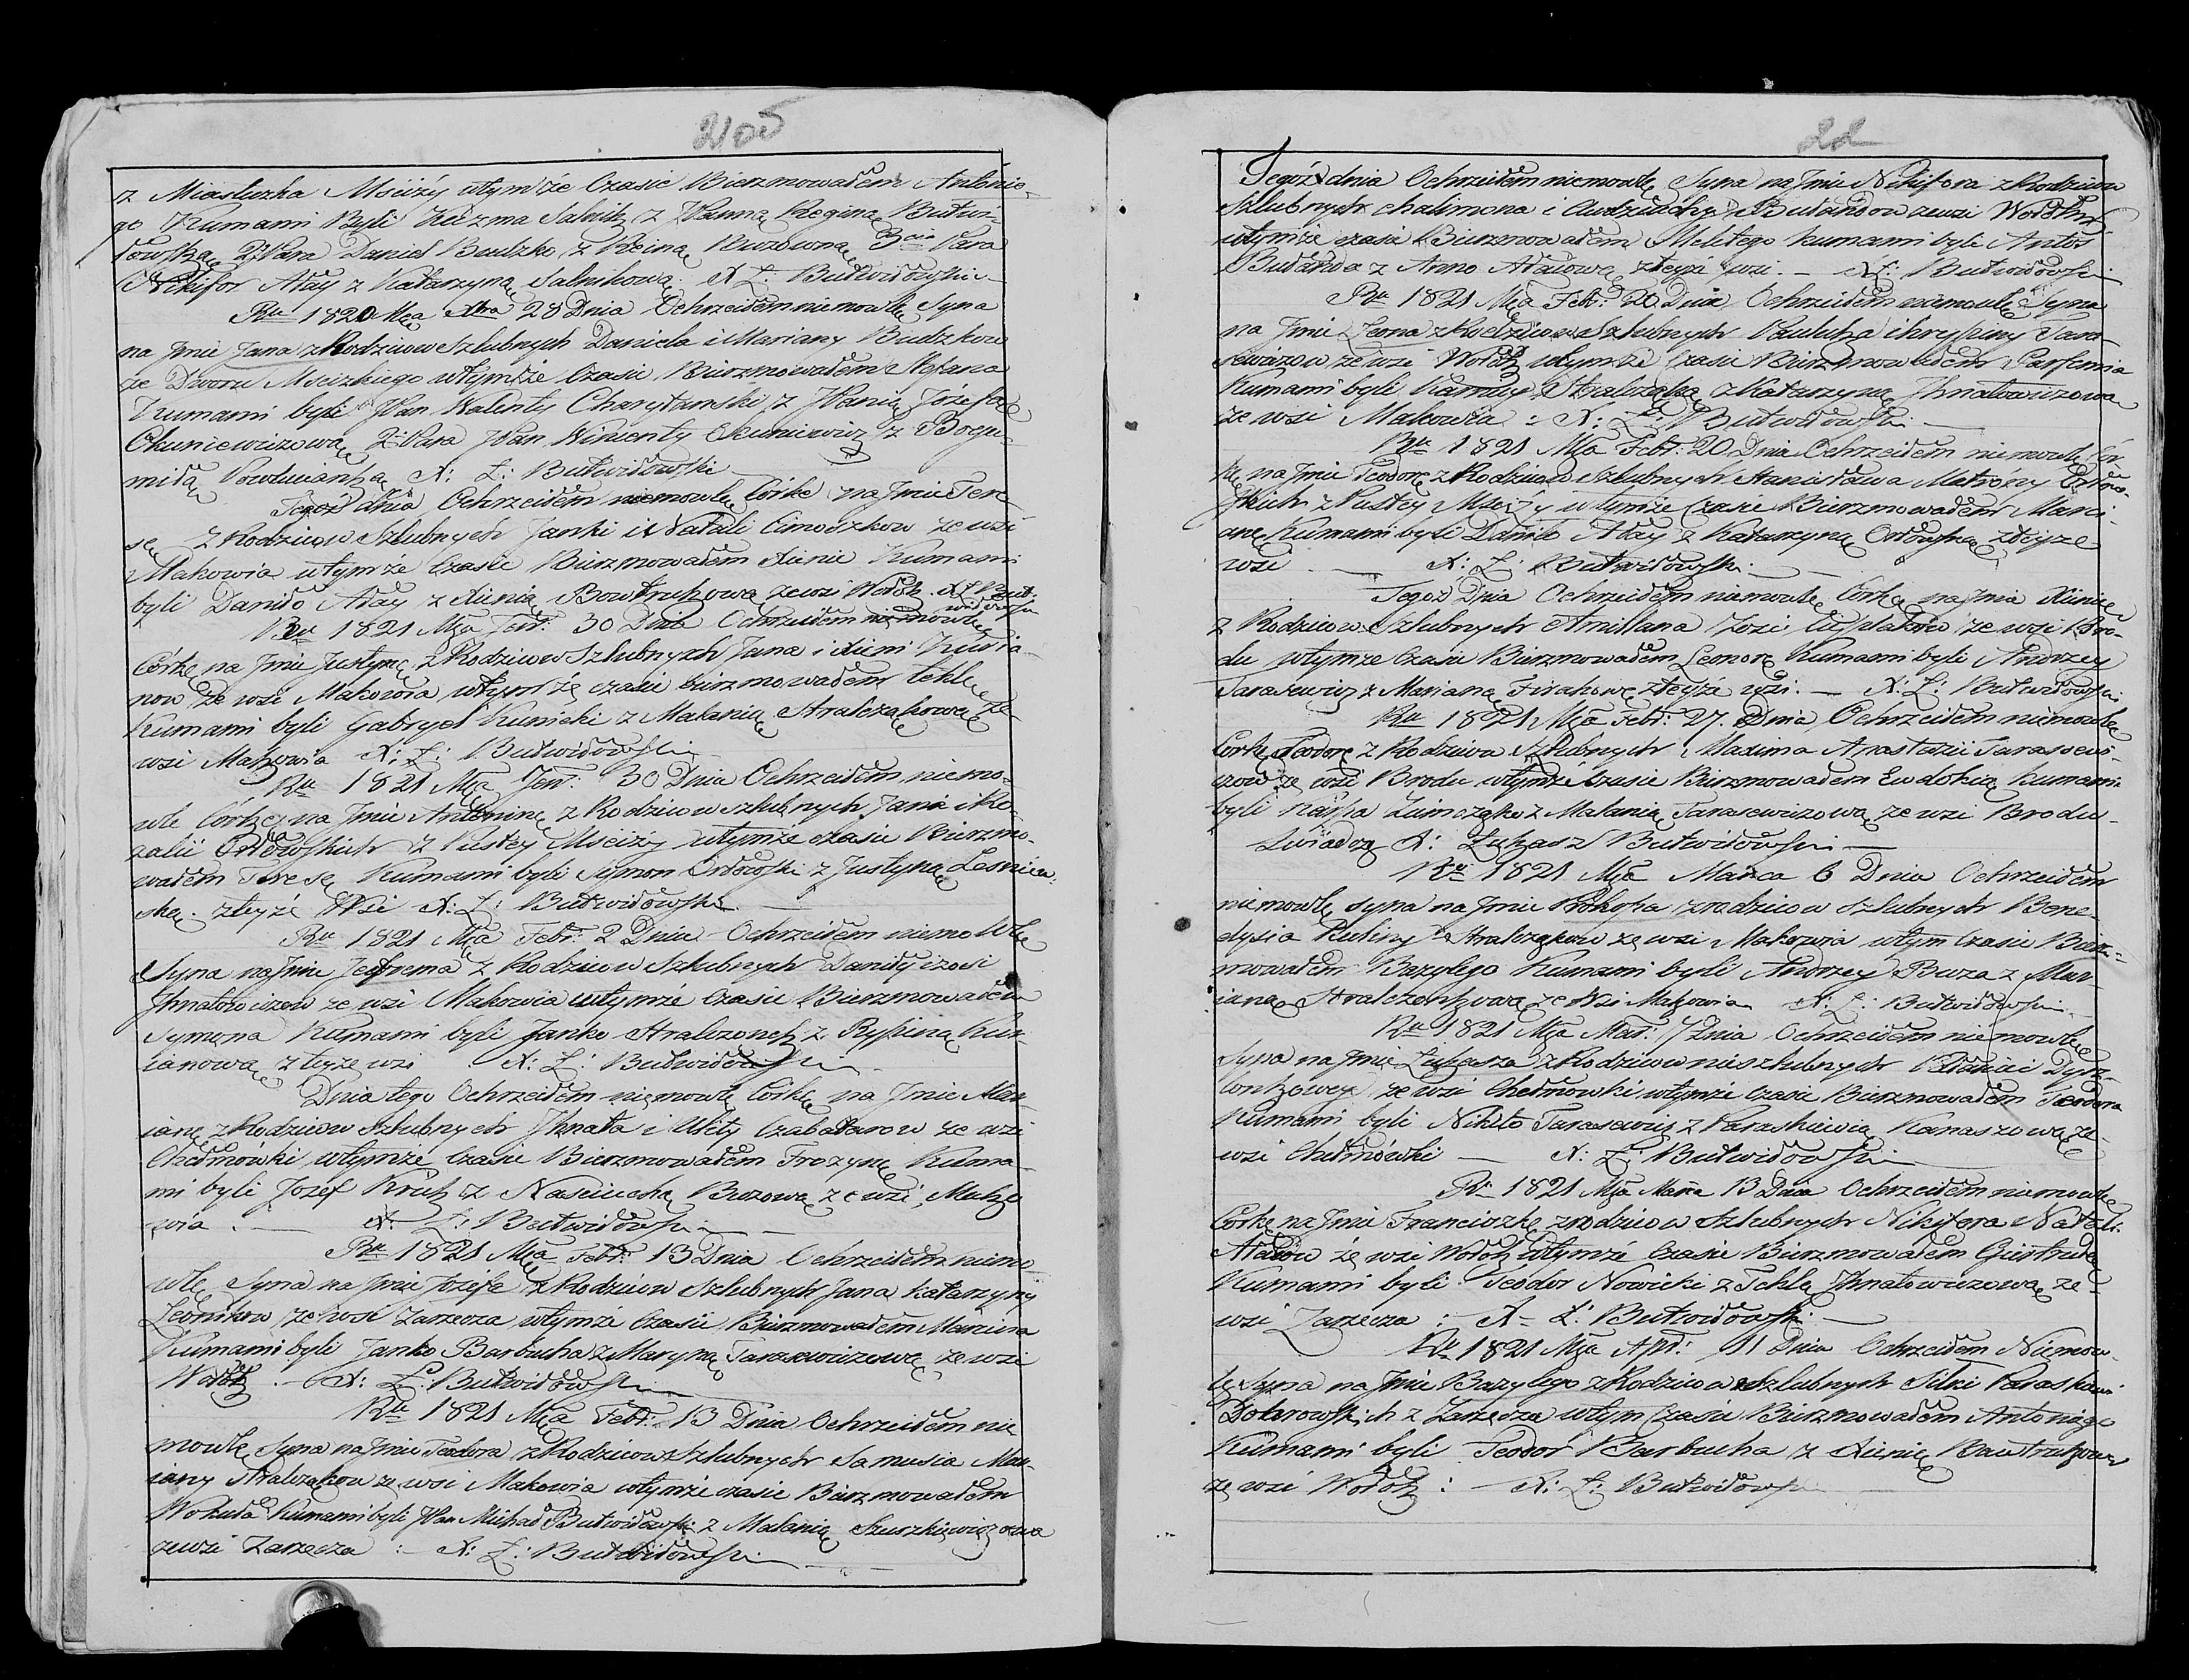 21об
z Miasteczka Mściży wtymże Czasie Bierzmowałem Antonie-
go Kumami Byli Kuzma Salnik z JPanną Reginą Butwi-
dowską 2 Para Daniel Budzko z Reiną Ruzowną 3cia Para
Nikifor Ałay z Katarzyną Salnikową. X Ł: Butwidowski
Ru 1820 Mca Xbra 28 Dnia Ochrzciłem niemowle Syna
na Jmie Jana z Rodzicow Szlubnych Daniela i Maryany Budzkow
ze Dworu Mścizkiego wtymże Czasie Bierzmowałem Stefana
Kumami byli JPan Walenty Charytanski z JPanią Józefą
Okuniewiczową 2 Para JPan Wincenty Okuniewicz z Bogu-
miłą X: Ł: Butwidowski
Tegoż dnia Ochrzciłem niemowle Córkę na Jmie Tere-
sę z Rodzicow Szlubnych Janki i Natali Cimoszkow ze wsi
Makowia wtymże Czasie Bierzmowałem Xienie Kumami
byli Daniło Ałay z Xienią Bowtrukową ze wsi Wołok. X Ł But-
widowski
Ru 1821 Mca Jen: 30 Dnia Ochrzciłem niemowle
Córkę na Jmie Justynę z Rodzicow Szlubnych Jana i Xieni Kuria-
now ze wsi Makowia wtymże czasie bierzmowałem teklę
Kumami byli Gabryel Kunicki z Małanią Stralczakową ze
wsi Makowia X: Ł: Butwidowski
Ru 1821 Mca Jen: 30 Dnia Ochrzciłem niemo-
wle Córkę na Jmie Antoninę z Rodzicow szlubnych Jana i Ro-
zalii Orłowskich z Pustey Mściży wtymże czasie Bierzmo-
wałem Teresę Kumami byli Symon Orłowski z Justyną Leśnic-
ską. zteyże Wsi X: Ł: Butwidowski
Ru 1821 Mca Febr: 2 Dnia Ochrzciłem niemowle
Syna na Jmie Jefrema z Rodzicow Szlubnych Daniły i zosi
Jhnatowiczow ze wsi Makowia wtymże Czasie Bierzmowałem
Symona Kumami byli Janko Stralczonek z Rypiną Kur-
ianową z teyże wsi X: Ł: Butwidowski
Dnia tego Ochrzciłem niemowle Córkę na Jmie Mar-
ianę z Rodzicow Szlubnych Jhnata i Ulity Czabatarow ze wsi
Chełmowki wtymże Czasie Bierzmowałem Frozynę Kuma-
mi byli Jozef Kruk z Nasciuchą Buzową ze wsi Mako-
wia. X: Ł: Butwidowski
Ru 1821 Mca Febr: 13 Dnia Ochrzciłem niemo-
wle Syna na Jmie Jozefa z Rodzicow Szlubnych Jana Katarzyny
Leśnikow ze wsi Zarzecza wtymże Czasie Bierzmowałem Marcina
Kumami byli Janko Barbucha z Maryną Tarasewiczową ze wsi
Wołok. X: Ł: Butwidowski
Ru 1821 Mca Febr: 13 Dnia Ochrzciłem nie
mowle Syna na Jmie Teodora z Rodzicow Szlubnych Samusia Mar-
iany Stralczakow ze wsi Makowia wtymże czasie Bierzmowałem
Wokuła Kumami byli JPan Michał Butwidowski z Małanią Szuszkiewiczowa
ze wsi Zarzecza: X: Ł: Butwidowski
22
Tegoż dnia Ochrzciłem niemowle Syna na Jmie Nikifora z Rodzicow
Szlubnych chalimona i Awdziuchy Budandow ze wsi Wołok
wtymże czasie Bierzmowałem Meletego kumami byli Antoś
Budanda z Anno Ałaiową zteyże wsi. X: Ł: Butwidowski
Ru 1821 Mca Febr: 20 Dnia Ochrzciłem niemowle Syna
na Jmie Leona z Rodzicow Szlubnych Pauluka i hrypiny Tara-
sewiczow ze wsi Wołok wtymże Czasie Bierzmowałem Parfenia
Kumami byli Stralczak z Katarzyną Jhnatowiczowa
ze wsi Makowia: X: Ł: Butwidowski
Ru 1821 Mca Febr: 20 Dnia Ochrzciłem niemowle Cór-
kę na Jmie Teodorę z Rodzicow Szlubnych Stanisława Matrony Orłow-
skich z Pustey Mściży wtymże Czasie Bierzmowałem Mari-
anę Kumami byli Daniło Ałay z Katarzyną Orłowską zteyże
wsi X: Ł: Butwidowski
Tegoż Dnia Ochrzciłem niemowle Córkę na Jmia Xienię
z Rodzicow Szlubnych Amillana Zosi ze wsi Bro-
du wtymże Czasie Bierzmowałem Leonorę Kumami byli Andrzey
Tarasewicz z Marianą Firakową zteyże wsi. X: Ł: Butwidowski
Ru 1821 Mca Febr: 27. Dnia Ochrzciłem niemowle
Corkę Teodorę z Rodzicow Szlubnych Maxima Anastazii Tarasewi-
czow ze wsi Brodu wtymże Czasie Bierzmowałem Ewdokię kumami
byli z Małanią Tarasewiczową ze wsi Brodu-
Swiadczę X: Łukasz Butwidowski
Ru 1821 Mca Marca 6 Dnia Ochrzciłem
niemowle syna na Jmie Prokopa zrodzicow szlubnych Bene-
dysia Stralczakow ze wsi Makowia wtym Czasie Bierz-
mowałem Bazylego Kumami byli Andrzey Buza z Mar-
ianą Stralczonkową ze Wsi Makowia X: Ł: Butwidowski
Ru 1821 Mca Mar: 7 Dnia Ochrzciłem niemowle
Syna na Jmie Łukasza z Rodzicow nieszlubnych
ze wsi Chełmowki wtymże Czasie Bierzmowałem Teodora
Kumami byli Nikito Tarasewicz z Paraskiewią Kanaszową ze
wsi Chełmówki X: Ł: Butwidowski
Ru 1821 Mca Marca 13 Dnia Ochrzciłem niemowle
Corkę na Jmie Franciszkę zrodzicow Szlubnych Nikifora Natali
Ałaiow ze wsi Wołok wtymże Czasie Bierzmowałem Giertrudę
Kumami byli Teodor Nowicki z Teklą Jhnatowiczową ze
wsi Zarzecza: X Ł: Butwidowski
Ru 1821 Mca Apr: 11 Dnia Ochrzciłem Niemow-
le Syna na Jmie Bazylego z Rodzicow Szlubnych Silwi Paraskiewi
Dobrowskich z Zarzecza wtym Czasie Bierzmowałem Antoniego
Kumami byli Teodor Barbucha z Xienią Bawtrukowa
ze wsi Wołok: X: Ł: Butwidowski